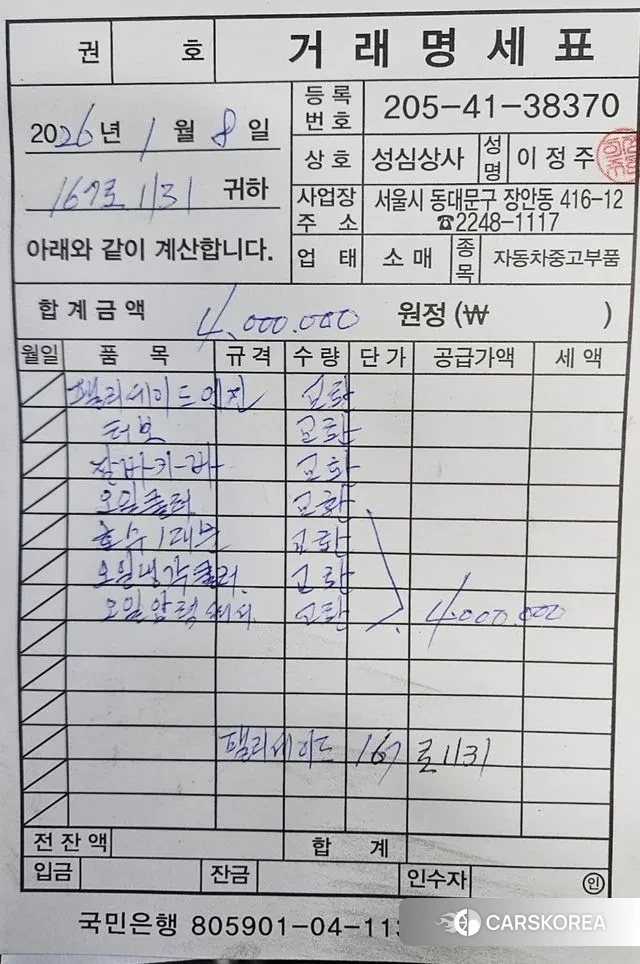 권 호 거래명세표
2026년 1월 8일
등록번호 205-41-38370
167로1131 귀하
상호 성심상사 성명 이정주
사업장주소 서울시 동대문구 장안동 416-12
☎2248-1117
아래와 같이 계산합니다.
업태 소매 종목 자동차중고부품
합계금액 4,000.000 원정 (₩ )
월일 품목 규격 수량 단가 공급가액 세액
팰리세이드 엔진 교환
터보 교환
교환
오일쿨러 교환
교환
오일냉각쿨러. 교환
오일압력 교환 4.000.000
팰리세이드 167로1131
전잔액 합계
입금 잔금 인수자 인
국민은행 805901-04-113
CARSKOREA